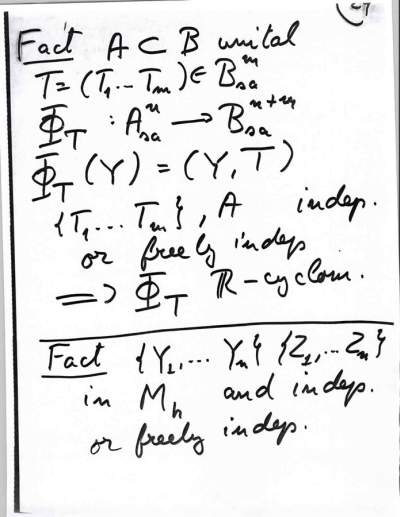 Fact A ⊂ B unital
T = (T₁ … Tₘ) ∈ Bᵐₛₐ
Φ_T : Aⁿₛₐ → Bⁿ⁺ᵐₛₐ
Φ_T (Y) = (Y, T)
{T₁ … Tₘ}, A indep.
or freely indep
⟹ Φ_T R-cyclom.
Fact {Y₁, … Yₙ} {Z₁, … Zₙ}
in Mₕ and indep.
or freely indep.